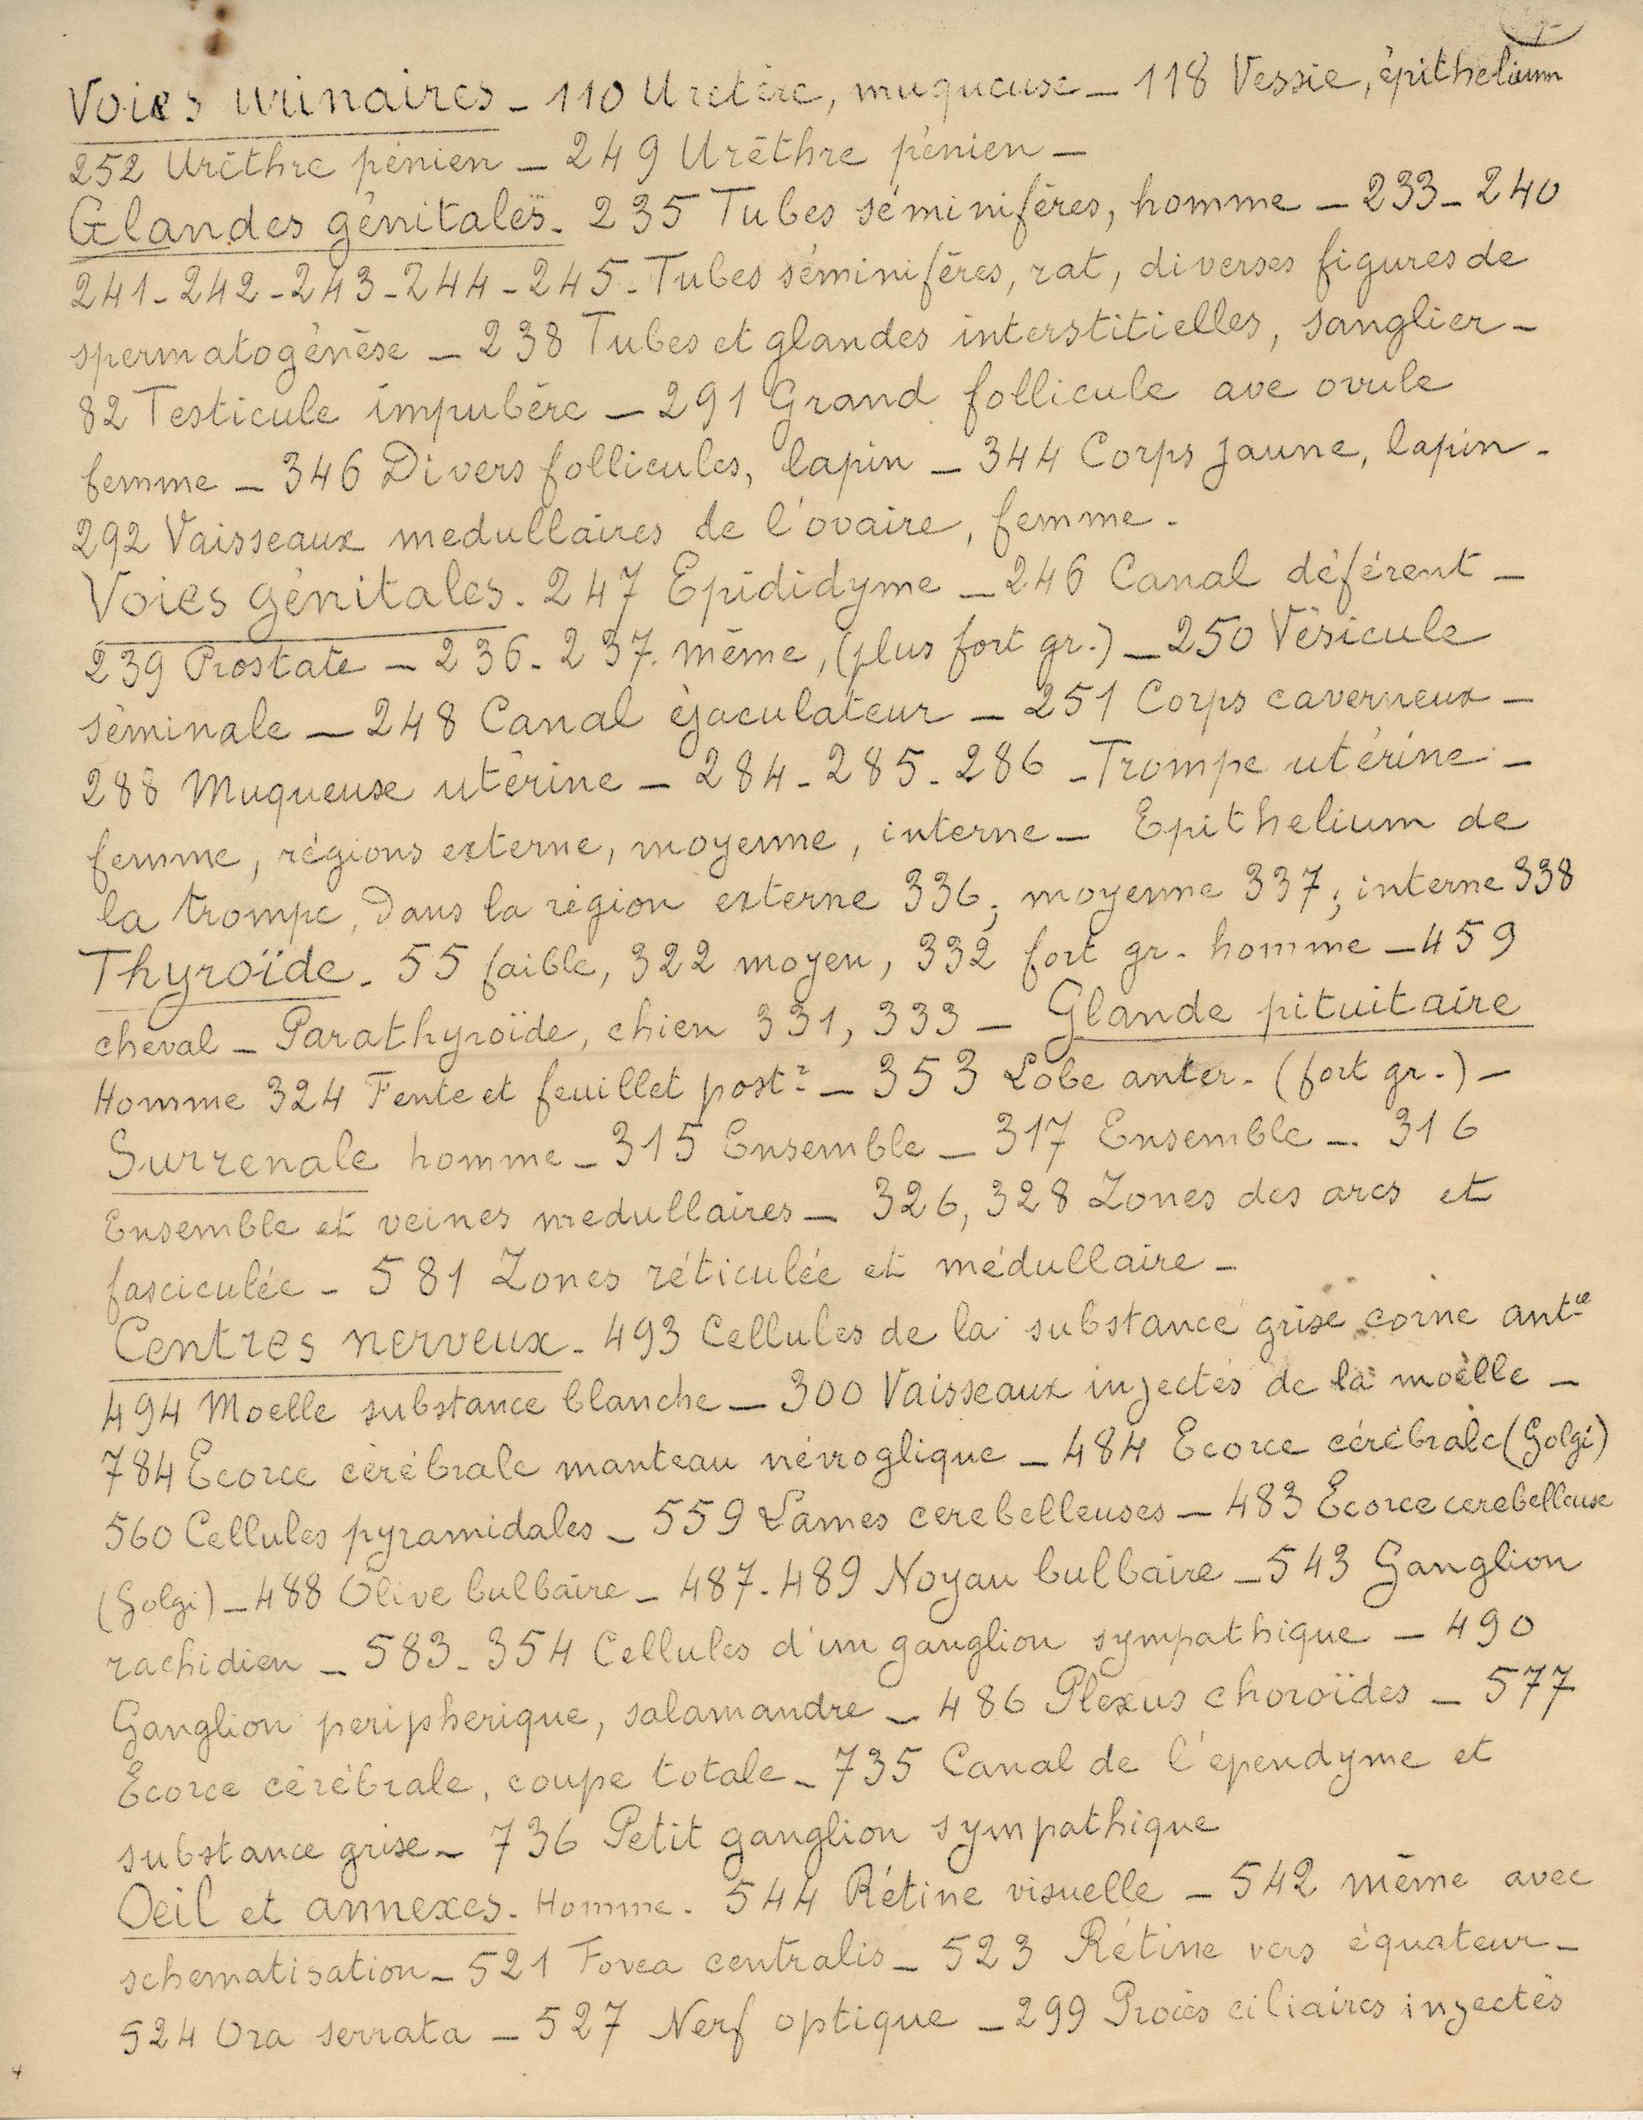 Voies urinaires - 110 Uretère, muqueuse - 118 Vessie, épithelium
252 Urèthre pénien - 249 Urèthre pénien -
Glandes génitales. 235 Tubes séminifères, homme - 233 - 240
241 - 242 - 243 - 244 - 245 - Tubes séminifères, rat, diverses figures de
spermatogénèse - 238 Tubes et glandes interstitielles, sanglier -
82 Testicule impubère - 291 Grand follicule ave ovule
femme - 346 Divers follicules, lapin - 344 Corps jaune, lapin -
292 Vaisseaux medullaires de l'ovaire, femme.
Voies génitales. 247 Epididyme - 246 Canal déférent -
239 Prostate - 236 - 237. même, (plus fort gr.) - 250 Vésicule
séminale - 248 Canal éjaculateur - 251 Corps caverneux -
288 Muqueuse utérine - 284 - 285 - 286 - Trompe utérine -
femme, régions externe, moyenne, interne - Epithelium de
la trompe, dans la région externe 336; moyenne 337; interne 338
Thyroïde. 55 faible, 322 moyen, 332 fort gr. homme - 459
cheval - Parathyroïde, chien 331, 333 - Glande pituitaire
Homme 324 Fente et feuillet postr - 353 Lobe anter. (fort gr.) -
Surrenale homme - 315 Ensemble - 317 Ensemble - 316
Ensemble et veines medullaires - 326, 328 Zones des arcs et
fasciculée - 581 Zones réticulée et médullaire -
Centres nerveux. 493 Cellules de la substance grise corne antre
494 Moelle substance blanche - 300 Vaisseaux injectés de la moëlle -
784 Ecorce cérébrale manteau névroglique - 484 Ecorce cérébrale (Golgi)
560 Cellules pyramidales - 559 Lames cerebelleuses - 483 Ecorce cerebelleuse
(Golgi) - 488 Olive bulbaire - 487 - 489 Noyau bulbaire - 543 Ganglion
rachidien - 583 - 354 Cellules d'un ganglion sympathique - 490
Ganglion peripherique, salamandre - 486 Plexus choroïdes - 577
Ecorce cérébrale, coupe totale - 735 Canal de l'ependyme et
substance grise - 736 Petit ganglion sympathique
Oeil et annexes. Homme. 544 Rétine visuelle - 542 même avec
schematisation - 521 Fovea centralis - 523 Rétine vers équateur -
524 Ora serrata - 527 Nerf optique - 299 Procès ciliaires injectés